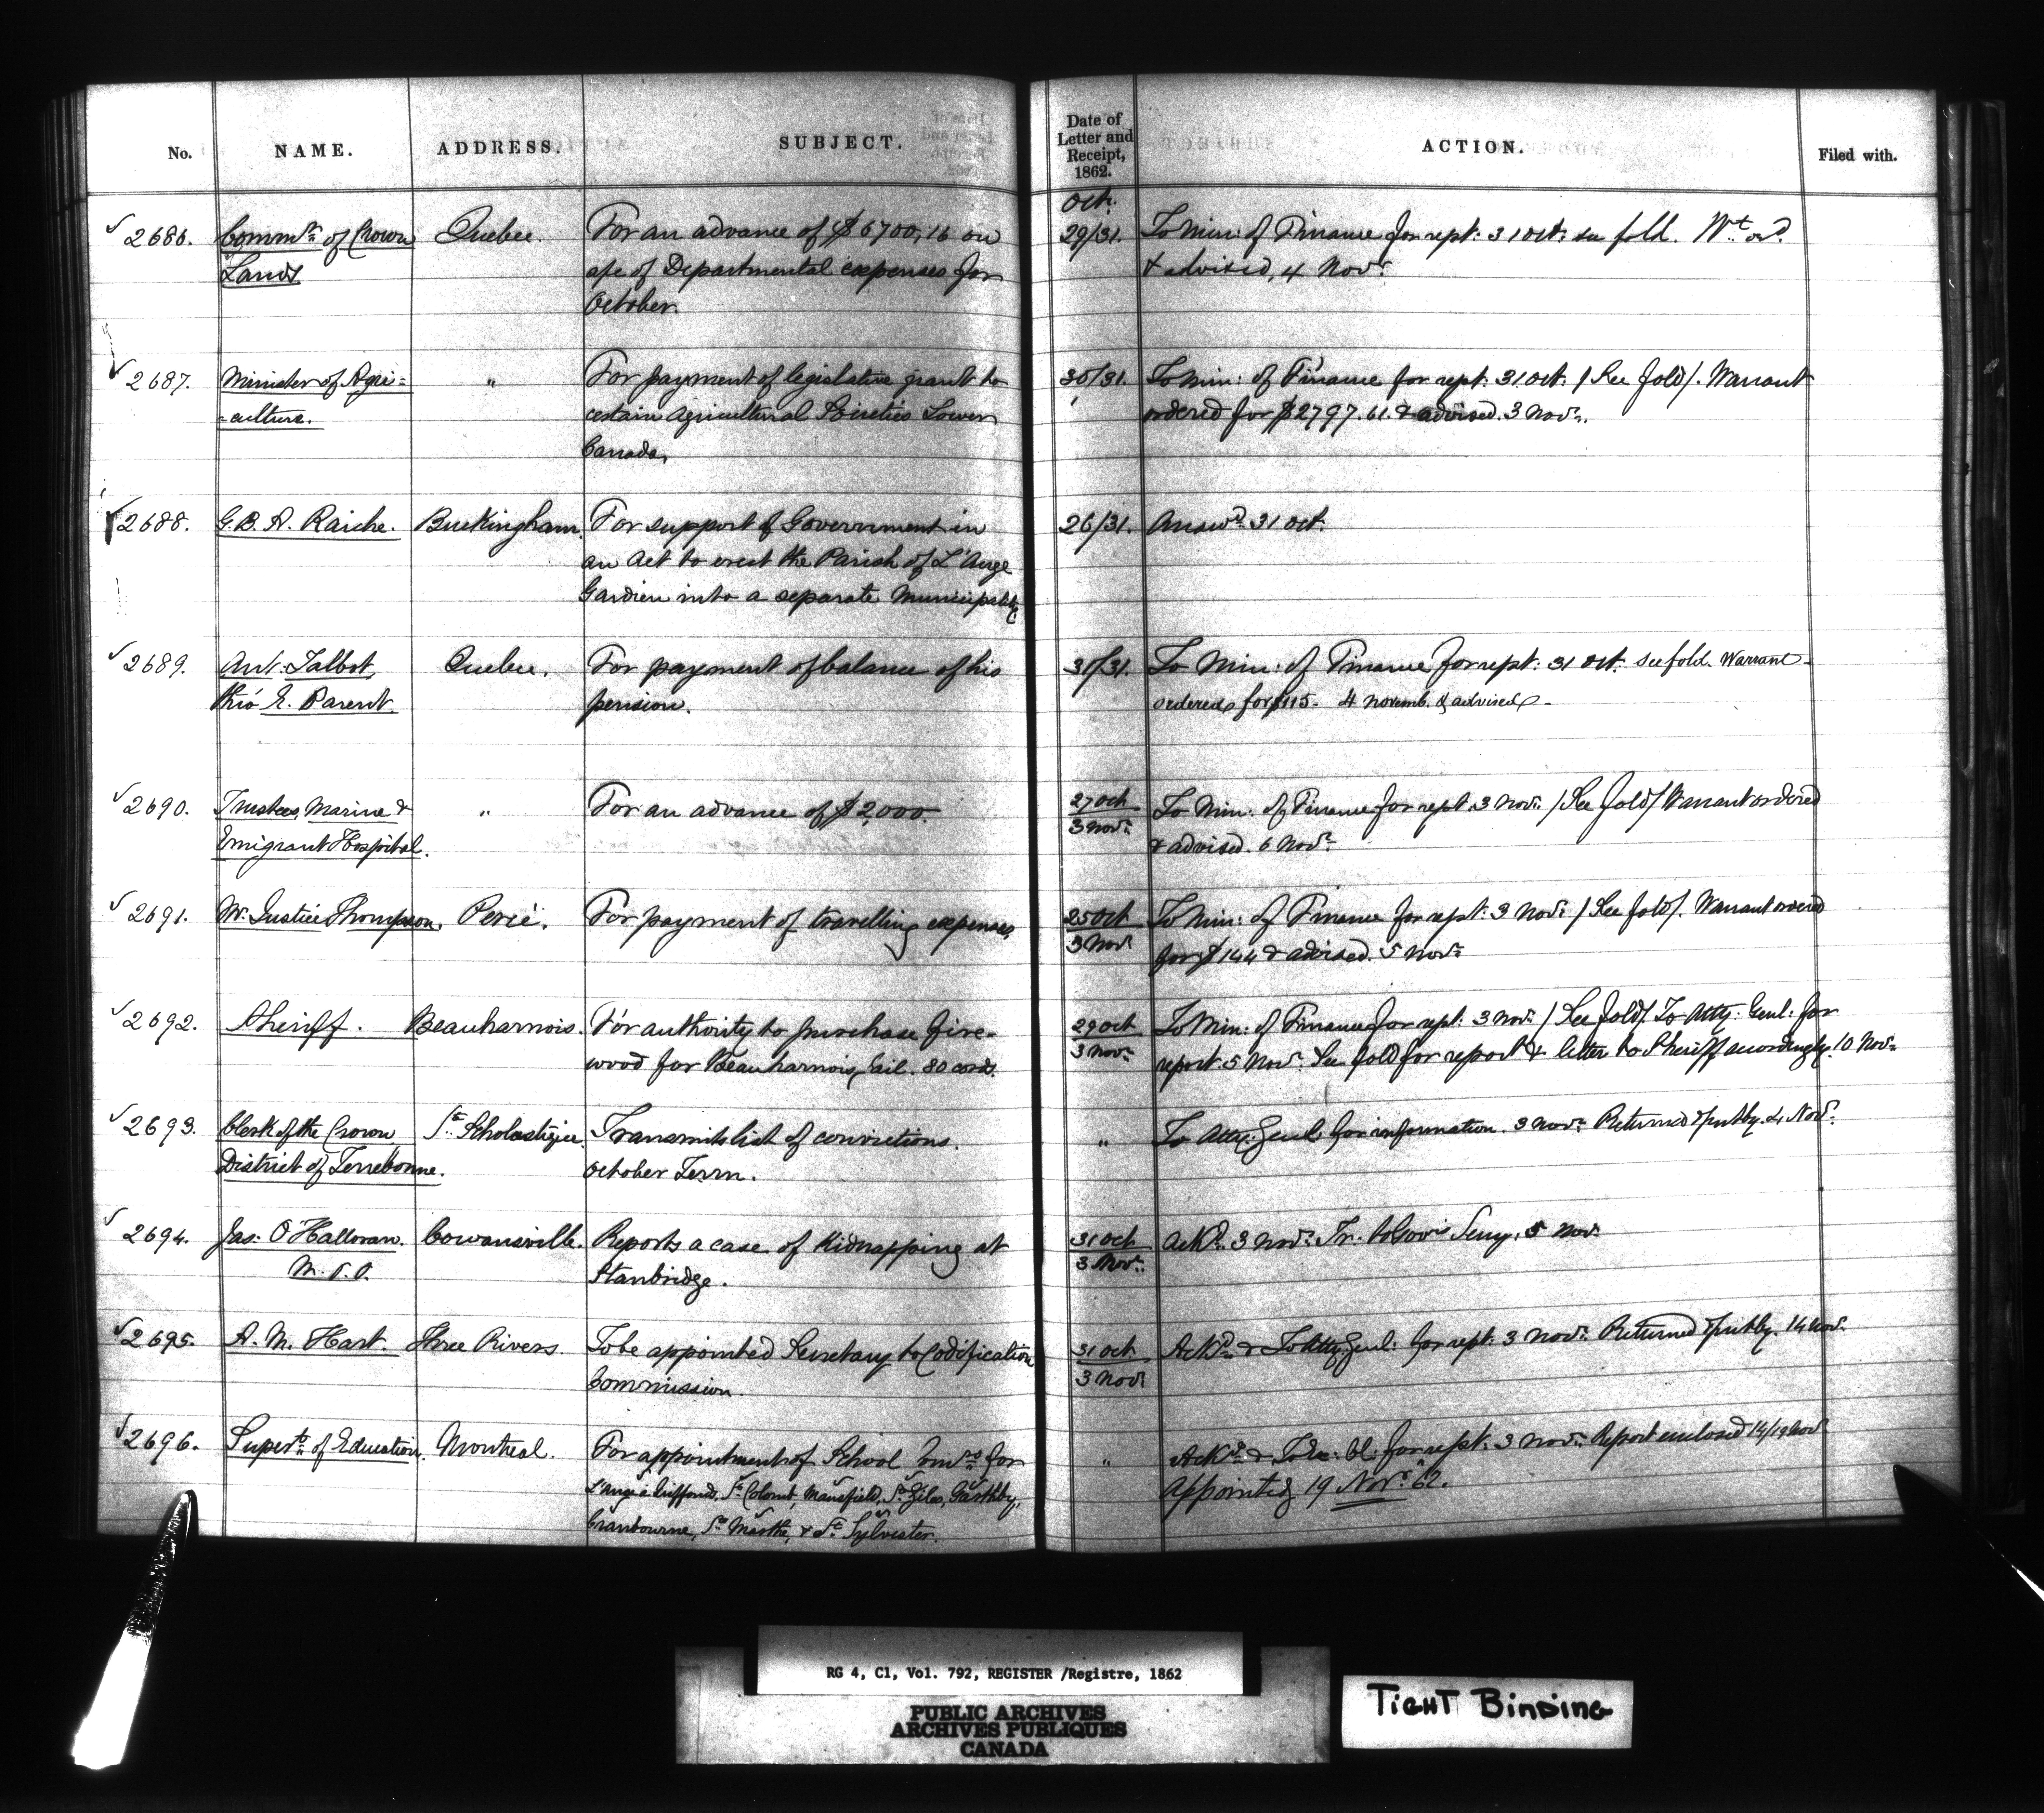 No. NAME. ADDRESS. SUBJECT. Date of Letter and Receipt, 1862. ACTION. Filed with.
Oct.
2686. Comm.r of Crown Quebec. For an advance of $6700,16 on 29/31. To Min: of Finance for rept: 31 Oct: see fold. W.t or.d
Lands a/c of Departmental expenses for & advised, 4 Nov.r
October.
2687. Minister of Agri= " For payment of legislative grant to 30/31. To Min: of Finance for rept: 31 Oct: / See fold /. Warrant
=culture. certain Agricultural Societies Lower ordered for $2797.61. & advised. 3 Nov.r
Canada,
2688. G. B. A. Raiche. Buckingham. For support of Government in 26/31. Answ.d 31 Oct.
an Act to erect the Parish of L'Ange
Gardien into a separate Municipality.
2689. Ant: Talbot, Quebec. For payment of balance of his 31/31. To Min: of Finance for rept: 31 Oct: see fold. Warrant
thro' E. Parent. pension. ordered for $115. 4 Novemb. & advised.
2690. Trustees, Marine & " For an advance of $2,000. 27 Oct / 3 Nov.r To Min: of Finance for rept: 3 Nov.r / See fold / Warrant ordered
Emigrant Hospital. & advised. 6 Nov.r
2691. Mr. Justice Thompson. Percé. For payment of travelling expenses. 25 Oct / 3 Nov.r To Min: of Finance for rept: 3 Nov.r / See fold /. Warrant ordered
for $144 & advised. 5 Nov.r
2692. Sheriff. Beauharnois. For authority to purchase fire- 29 Oct / 3 Nov.r To Min: of Finance for rept: 3 Nov.r / See fold /. To Atty: Genl: for
wood for Beauharnois Gail. 80 cords. report. 5 Nov.r See fold for report & letter to Sheriff accordingly. 10 Nov.r
2693. Clerk of the Crown S.te Scholastique. Transmits list of convictions. " To Atty. Genl. for information. 3 Nov.r Returned & put by. 4 Nov.r
District of Terrebonne. October Term.
2694. Jas: O'Halloran. Cowansville. Reports a case of Kidnapping at 31 Oct / 3 Nov.r Ack.d 3 Nov.r Tr. to Gov's Secy. 5 Nov.
M.P.P. Stanbridge.
2695. A. M. Hart. Three Rivers. To be appointed Secretary to Codification 31 Oct / 3 Nov.r Ack.d & To Atty. Genl: for rept: 3 Nov.r Returned & put by. 14 Nov.
Commission.
2696. Super.t of Education. Montreal. For appointment of School Com.rs for " Ack.d & To Ex: Cl: for rept: 3 Nov.r Report enclosed 14/19 Nov
L'Ange Griffond, S.t Colomb, Mansfield, S.t Giles, Garthby, Appointed 19 Nov.r 62.
Cranbourne, S.te Marthe, & S.t Sylvester.
RG 4, C1, Vol. 792, REGISTER /Registre, 1862
PUBLIC ARCHIVES
ARCHIVES PUBLIQUES
CANADA
TIGHT BINDING